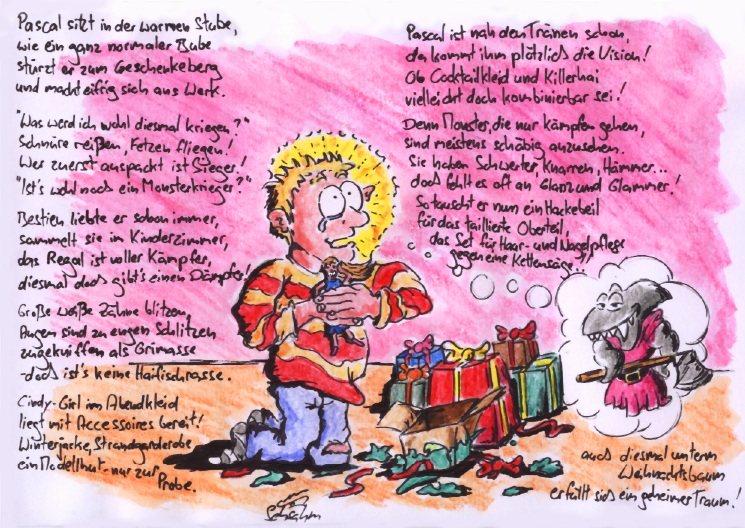 Pascal sitzt in der warmen Stube,
wie ein ganz normaler Bube
stürzt er zum Geschenkeberg
und macht eifrig sich ans Werk.
"Was werd ich wohl diesmal kriegen?"
Schnüre reißen, Fetzen fliegen!
Wer zuerst auspackt ist Sieger!
"Ist's wohl noch ein Monsterkrieger?"
Bestien liebte er schon immer,
sammelt sie im Kinderzimmer,
das Regal ist voller Kämpfer,
diesmal doch gibt's einen Dämpfer!
Große weiße Zähne blitzen,
Augen sind zu engen Schlitzen
zugekniffen als Grimasse
- doch ist's keine Haifischrasse.
Cindy-Girl im Abendkleid
liegt mit Accessoires bereit!
Winterjacke, Strandgarderobe
ein Modellhut nur zur
Probe.
Pascal ist nah den Tränen schon,
da kommt ihm plötzlich die Vision!
Ob Cocktailkleid und Killerhai
vielleicht doch kombinierbar sei!
Denn Monster, die nur kämpfen gehen,
sind meistens schäbig anzusehen.
Sie haben Schwerter, Knarren, Hämmer...
doch fehlt es oft an Glanz und Glammer!
So tauscht er nun ein Hackebeil
für das taillierte Oberteil,
das Set für Haar- und Nagelpflege
gegen eine Kettensäge...
auch diesmal unterm
Weihnachtsbaum
erfüllt sich ein geheimer Traum!